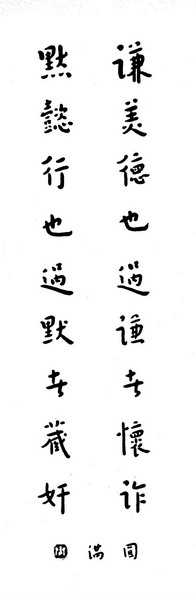 谦美德也過谦者懷诈
默懿行也過默者藏奸
圆满